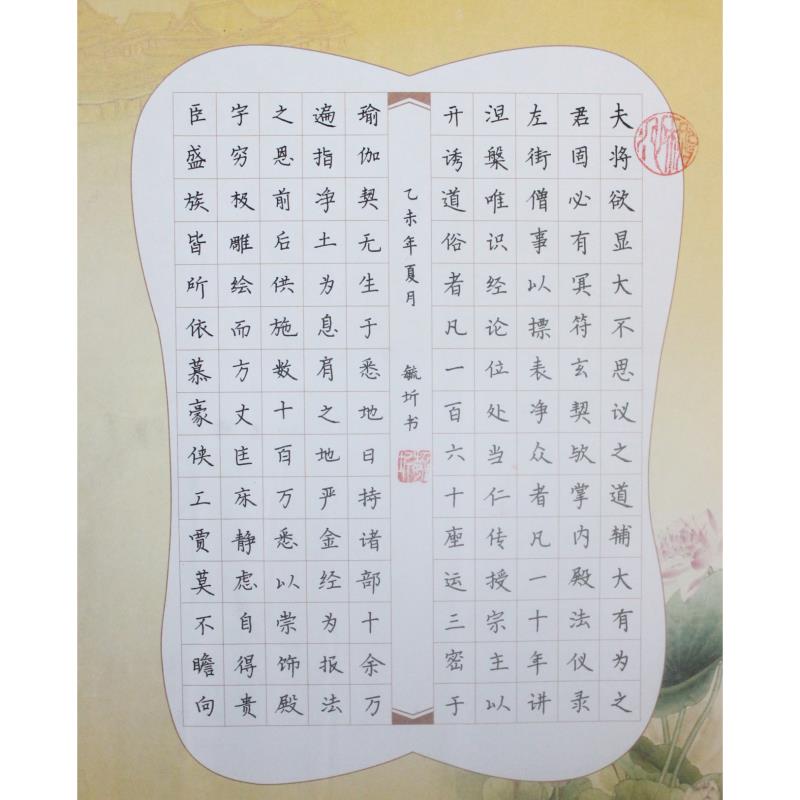 夫将欲显大不思议之道辅大有为之
君固必有冥符玄契欤掌内殿法仪录
左街僧事以摽表净众者凡一十年讲
涅槃唯识经论位处当仁传授宗主以
开诱道俗者凡一百六十座运三密于
乙未年夏月 毓圻书
瑜伽契无生于悉地日持诸部十余万
遍指净土为息肩之地严金经为报法
之恩前后供施数十百万悉以崇饰殿
宇穷极雕绘而方丈匡床静虑自得贵
臣盛族皆所依慕豪侠工贾莫不瞻向